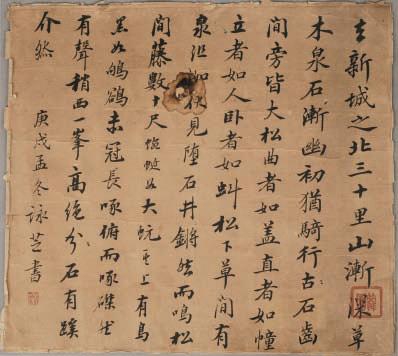 去新城之北三十里山漸深草
木泉石漸幽初猶騎行古石齒
間旁皆大松曲者如蓋直者如幢
立者如人卧者如蚪松下草間有
泉沮如伏見墮石井鏘然而鳴松
間藤數十尺蜿蜒如大蚖其上有鳥
黑如鴝鵒赤冠長啄俯而啄磔然
有聲稍西一峯高絶分石有蹊
介然
庚戌孟冬詠芝書